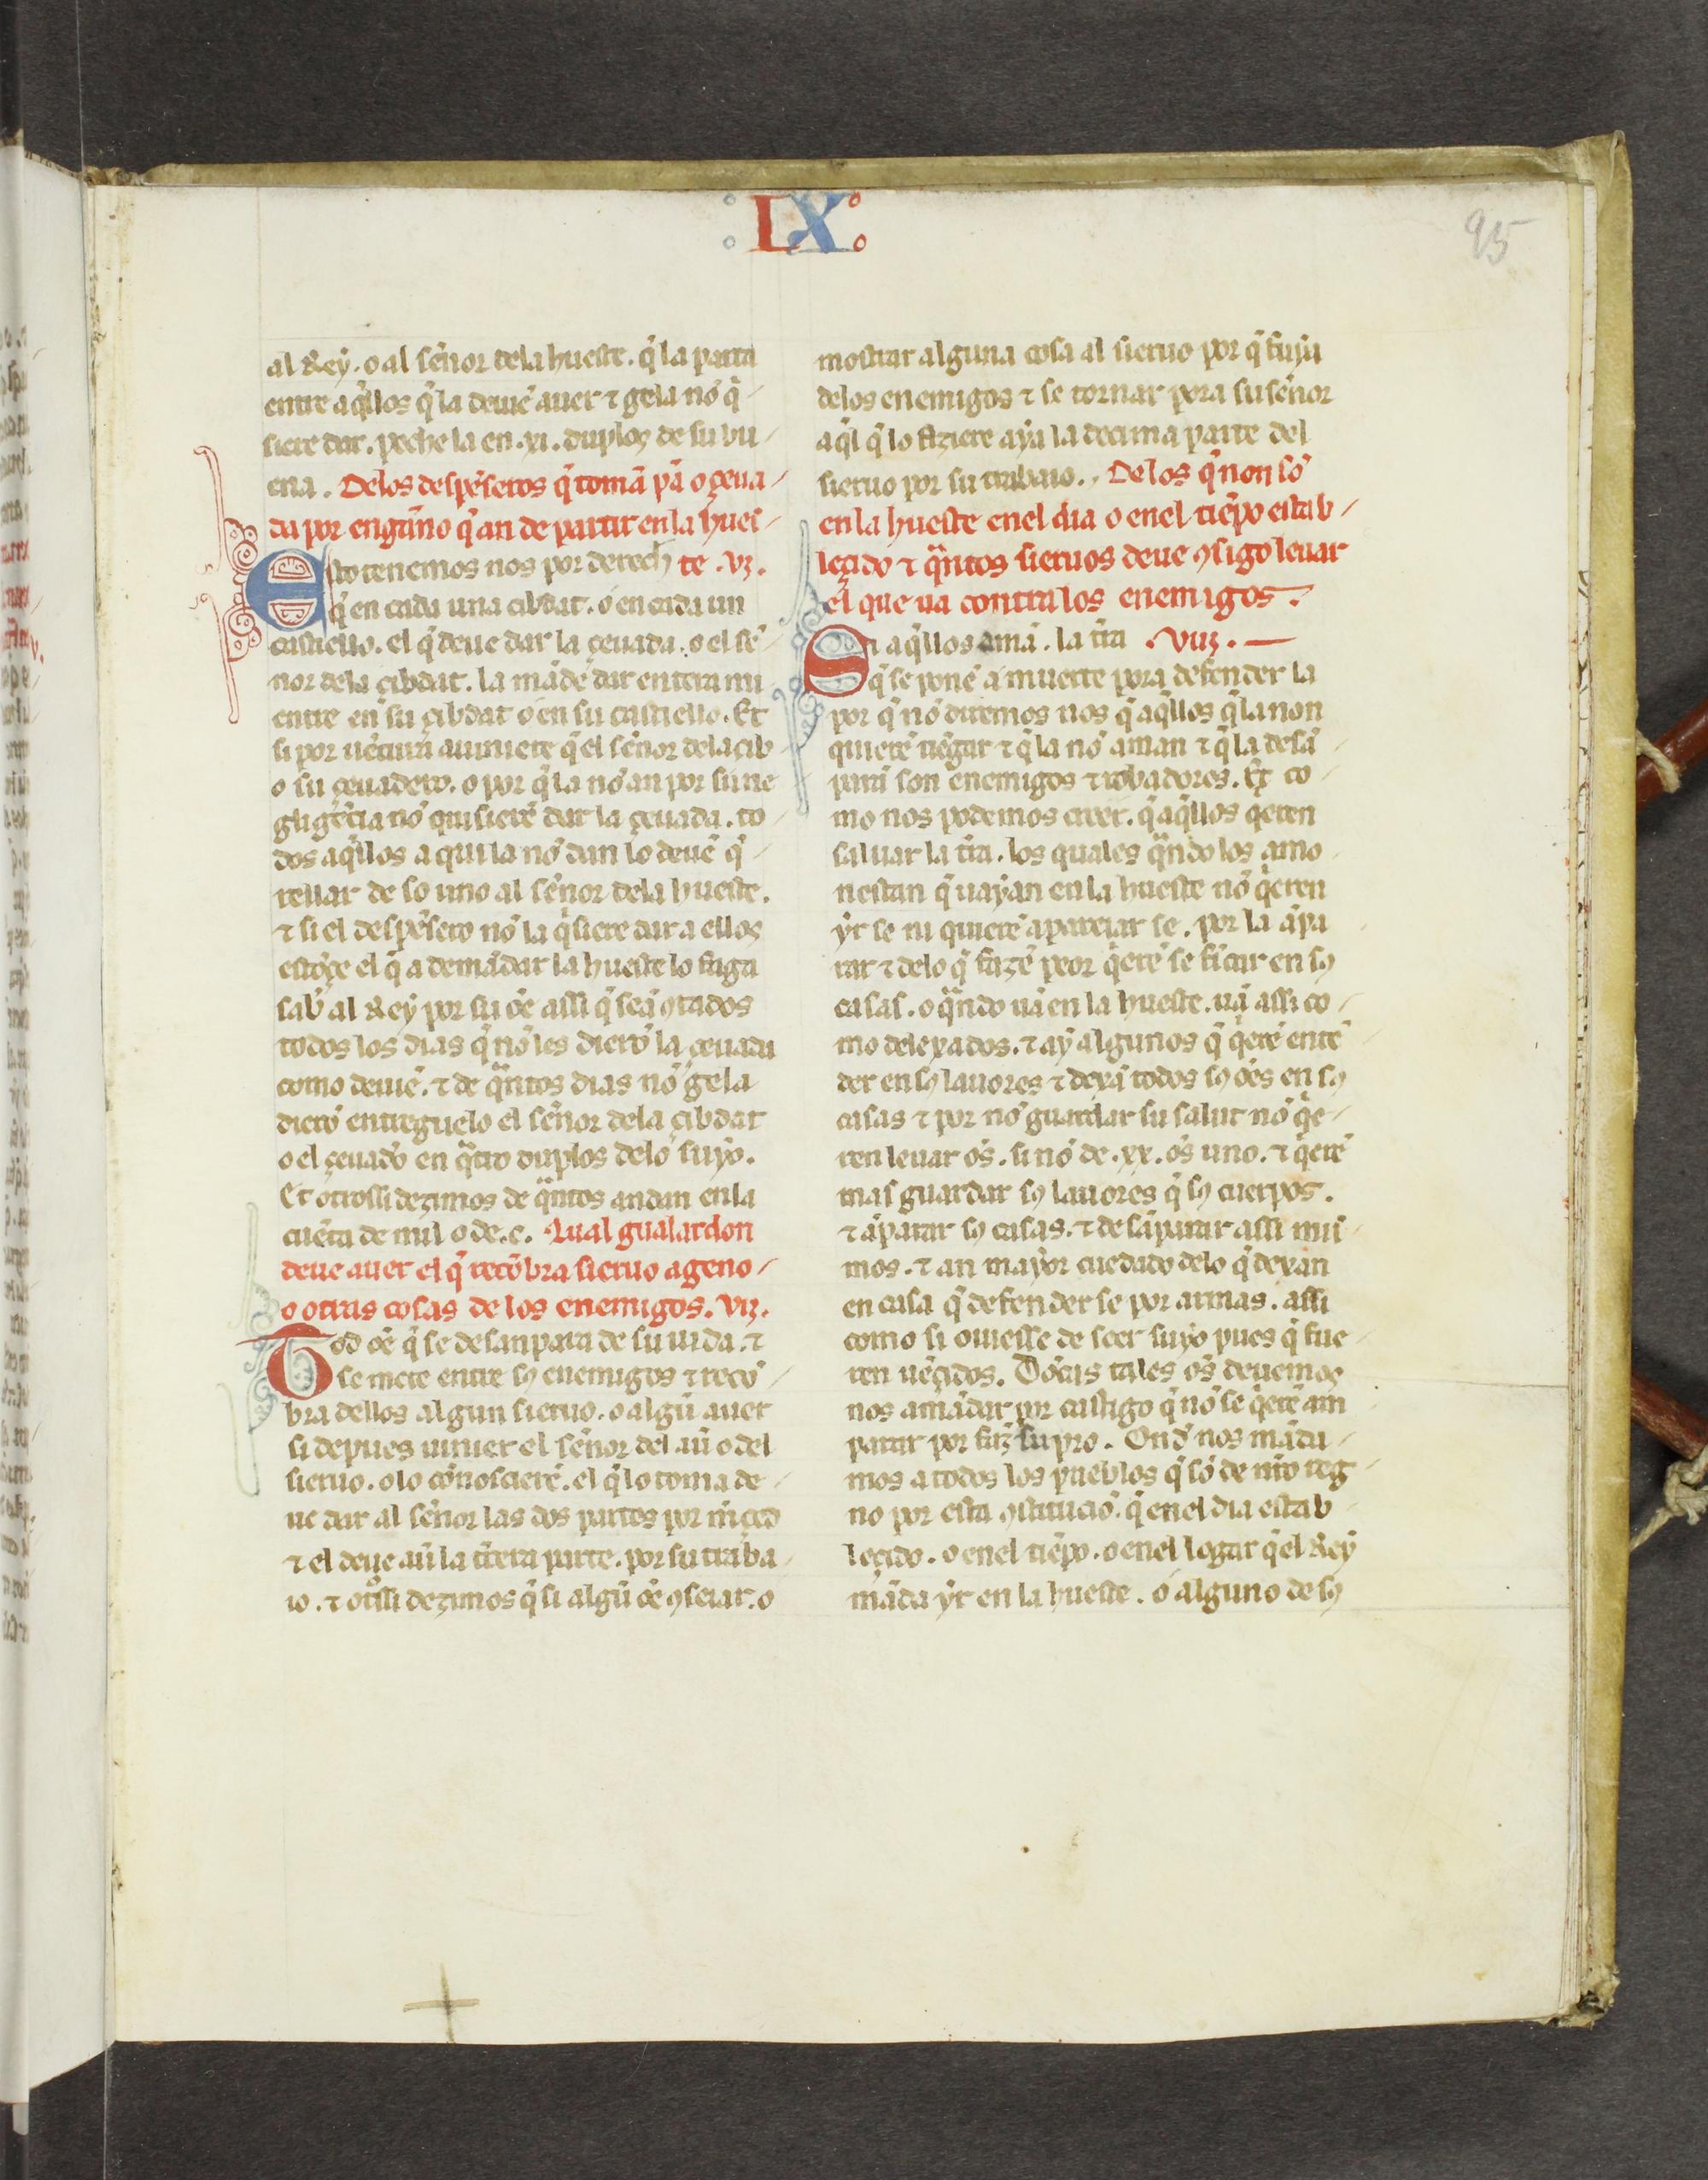 : LX :
95
al Rey. o al señor dela hueste. q̃ la parta
entre aq̃llos q̃ la deuẽ auer ⁊ gela nõ q̃
siere dar. peche la en .xi. duplos de su bu
ena. Delos despẽseros q̃ tomã pã o çeua
da por engãno q̃ an de partir en la hues
te .vj.
Esto tenemos nos por derech
q̃ en cada una cibdat. o en cada un
castiello. el q̃ deue dar la çeuada. o el se
ñor dela çibdat. la mãde dar entera mi
entre en su çibdat o en su castiello. Et
si por uẽtura auiniere q̃ el señor dela çib
o su çeuadero. o por q̃ la nõ an por su ne
gligẽcia nõ quisierẽ dar la çeuada. to
dos aq̃llos a qui la nõ dan lo deuẽ q̃
rellar de so uno al señor dela hueste.
⁊ si el despẽsero nõ la q̃siere dar a ellos
estõçe el q̃ a demãdar la hueste lo faga
sab̃ al Rey por su oẽ assi q̃ seã ꝯtados
todos los dias q̃ nõ les dierõ la çeuada
como deuẽ. ⁊ de q̃ntos dias nõ gela
dierõ entreguelo el señor dela çibdat
o el çeuadõ en q̃tro duplos delo suyo.
Et otrossi dezimos de q̃ntos andan en la
cuẽta de mil o de .c. Qual gualardon
deue auer el q̃ recõbra sieruo ageno
o otras cosas de los enemigos. vij.
Tod oẽ q̃ se desanpara de su uida. ⁊
se mete entre sꝯ enemigos ⁊ recõ
bra dellos algun sieruo. o algũ auer
si depues uinier el señor del aũ o del
sieruo. o lo coñoscierẽ. el q̃ lo toma de
ue dar al señor las dos partes por m̃çed
⁊ el deue aũ la t̃cera parte. por su traba
io. ⁊ otrossi dezimos q̃ si algũ oẽ ꝯseiar. o
mostrar alguna cosa al sieruo por q̃ fuya
delos enemigos ⁊ se tornar pora su señor
aq̃l q̃ lo fiziere aya la decima parte del
sieruo por su trabaio. De los q̃ non sõ
en la hueste en el dia o en el tiẽpo estab
leçido ⁊ q̃ntos sieruos deue ꝯsigo leuar
el que ua contra los enemigos.
Sin aq̃llos amã. la t̃ra .viij.
q̃ se ponẽ a muerte pora defender la
por q̃ nõ diremos nos q̃ aq̃llos q̃ la non
quierẽ uẽgar ⁊ q̃ la nõ aman ⁊ q̃ la desã
parã son enemigos ⁊ robadores. Et co
mo nos podemos creer. q̃ aq̃llos q̃eren
saluar la t̃ra. los quales q̃ndo los amo
nestan q̃ uayan en la hueste nõ q̃eren
yr se ni quierẽ apareiar se. por la ãpa
rar ⁊ delo q̃ fazẽ peor q̃erẽ se fincar en sꝯ
casas. o q̃ndo uã en la hueste. uã assi co
mo delexados. ⁊ ay algunos q̃ q̃erẽ entẽ
der en sꝯ lauores ⁊ dexã todos sꝯ oẽs en sꝯ
casas ⁊ por nõ guardar su salut nõ q̃e
ren leuar õs. si nõ de .xx. õs uno. ⁊ q̃erẽ
mas guardar sꝯ lauores q̃ sꝯ cuerpos.
⁊ ãparar sꝯ casas. ⁊ desãparar assi mis
mos. ⁊ an mayor cuedado delo q̃ dexan
en casa q̃ defender se por armas. assi
como si ouiesse de seer suyo pues q̃ fue
ren uẽçidos. Dõcas tales õs deuemos
nos amãdar por castigo q̃ nõ se q̃erẽ am
parar por faz̃ su pro. Ond̃ nos mãda
mos a todos los pueblos q̃ sõ de nr̃o reg
no por esta ꝯstituciõ. q̃ en el dia estab
leçido. o en el tiẽpo. o en el logar q̃ el Rey
mãda yr en la hueste. o alguno de sꝯ